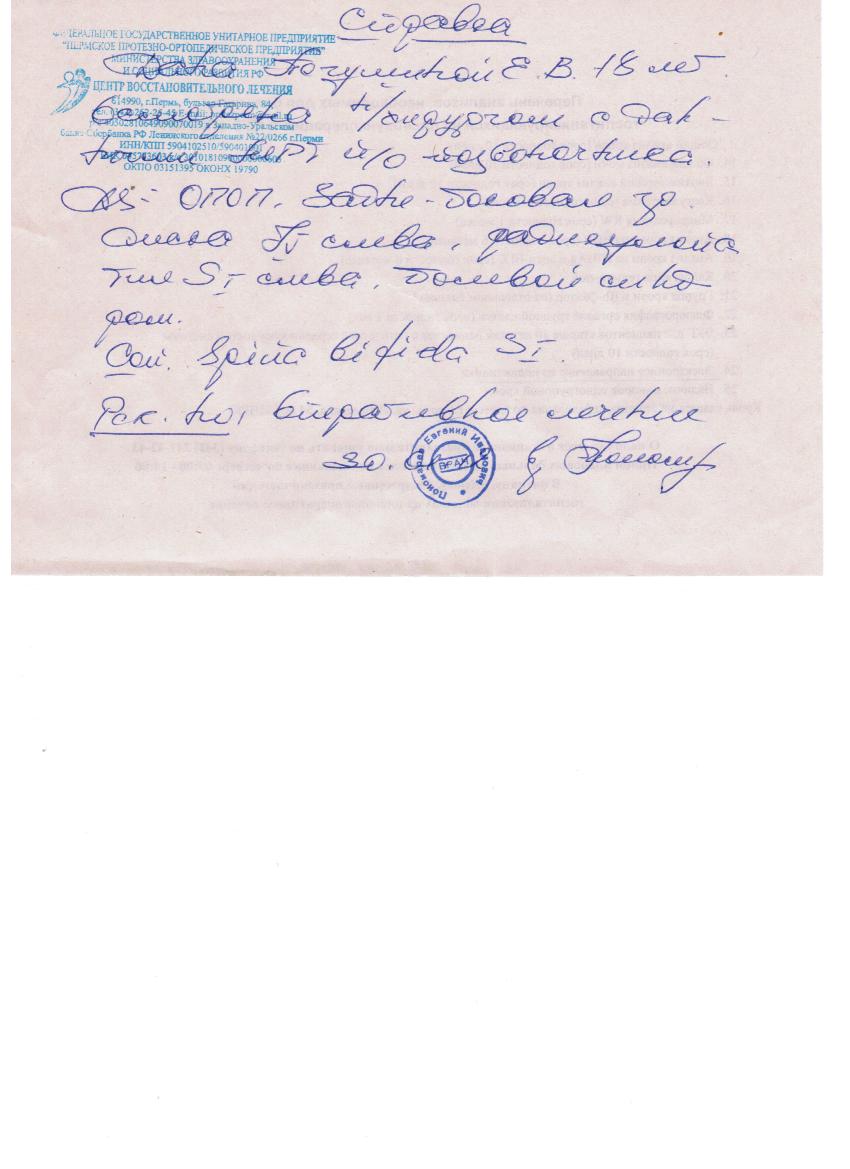 Справка
ФЕДЕРАЛЬНОЕ ГОСУДАРСТВЕННОЕ УНИТАРНОЕ ПРЕДПРИЯТИЕ
"ПЕРМСКОЕ ПРОТЕЗНО-ОРТОПЕДИЧЕСКОЕ ПРЕДПРИЯТИЕ"
МИНИСТЕРСТВА ЗДРАВООХРАНЕНИЯ
И СОЦИАЛЬНОГО РАЗВИТИЯ РФ
ЦЕНТР ВОССТАНОВИТЕЛЬНОГО ЛЕЧЕНИЯ
614990, г.Пермь, бульвар Гагарина, 84
в Западно-Уральском
банке Сбербанка РФ Ленинского отделения №22/0266 г.Перми
ИНН/КПП 5904102510/590401001
ОКПО 03151395 ОКОНХ 19790
Дана Е. В. 18 лет.
н/хирургом с дан-
ными МРТ п/о позвоночника.
DS: ОПОП. Задне-боковая гр.
слева, радикулопа
тия SI слева, болевой синд
ром.
Соп. Spina bifida SI.
Рек-но, Оперативное лечение
Пономарев Евгений Иванович
ВРАЧ